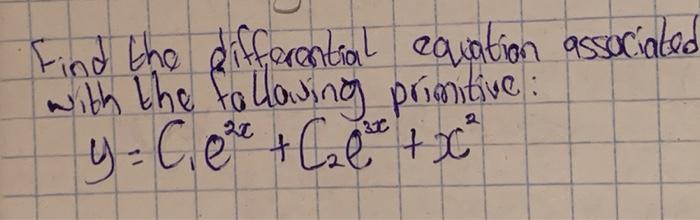 Find the differential equation associated
with the following primitive:
y = C₁e²ˣ + C₂e³ˣ + x²